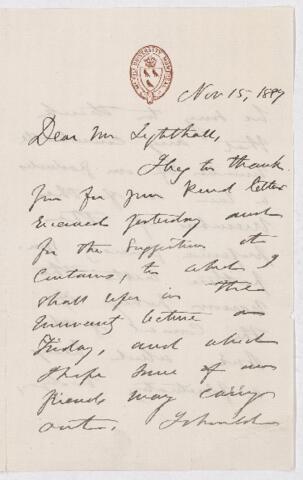 McGILL UNIVERSITY MONTREAL
Nov 15, 1889
Dear Mr Lighthall,
I beg to thank
you for your kind letter
received yesterday and
for the suggestion it
contains, to which I
shall refer in the
University lecture on
Friday, and which
I hope some of our
friends may carry
out. I should